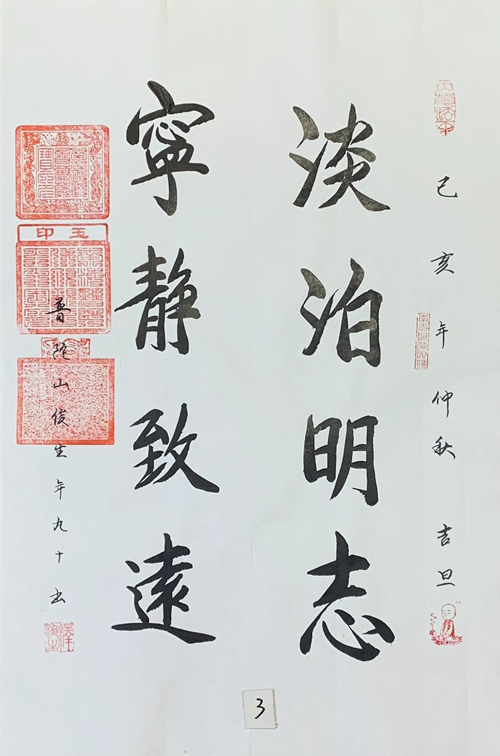 己亥年仲秋 吉旦
淡泊明志
寧靜致遠
普陀山俊生年九十书
玉印
3